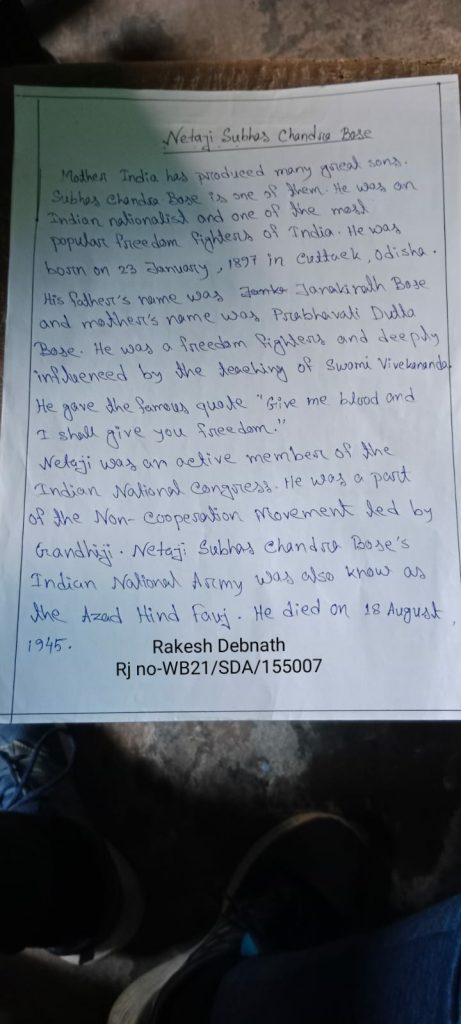 Netaji Subhas Chandra Bose
Mother India has produced many great sons.
Subhas Chandra Bose is one of them. He was an
Indian nationalist and one of the most
popular freedom fighters of India. He was
born on 23 January, 1897 in Cuttack, Odisha.
His father's name was Janakinath Bose
and mother's name was Prabhavati Dutta
Bose. He was a freedom fighters and deeply
influenced by the teaching of Swami Vivekananda.
He gave the famous quote "Give me blood and
I shall give you freedom."
Netaji was an active member of the
Indian National Congress. He was a part
of the Non-Cooperation Movement led by
Gandhiji. Netaji Subhas Chandra Bose's
Indian National Army was also know as
the Azad Hind Fauj. He died on 18 August,
1945.
Rakesh Debnath
Rj no-WB21/SDA/155007